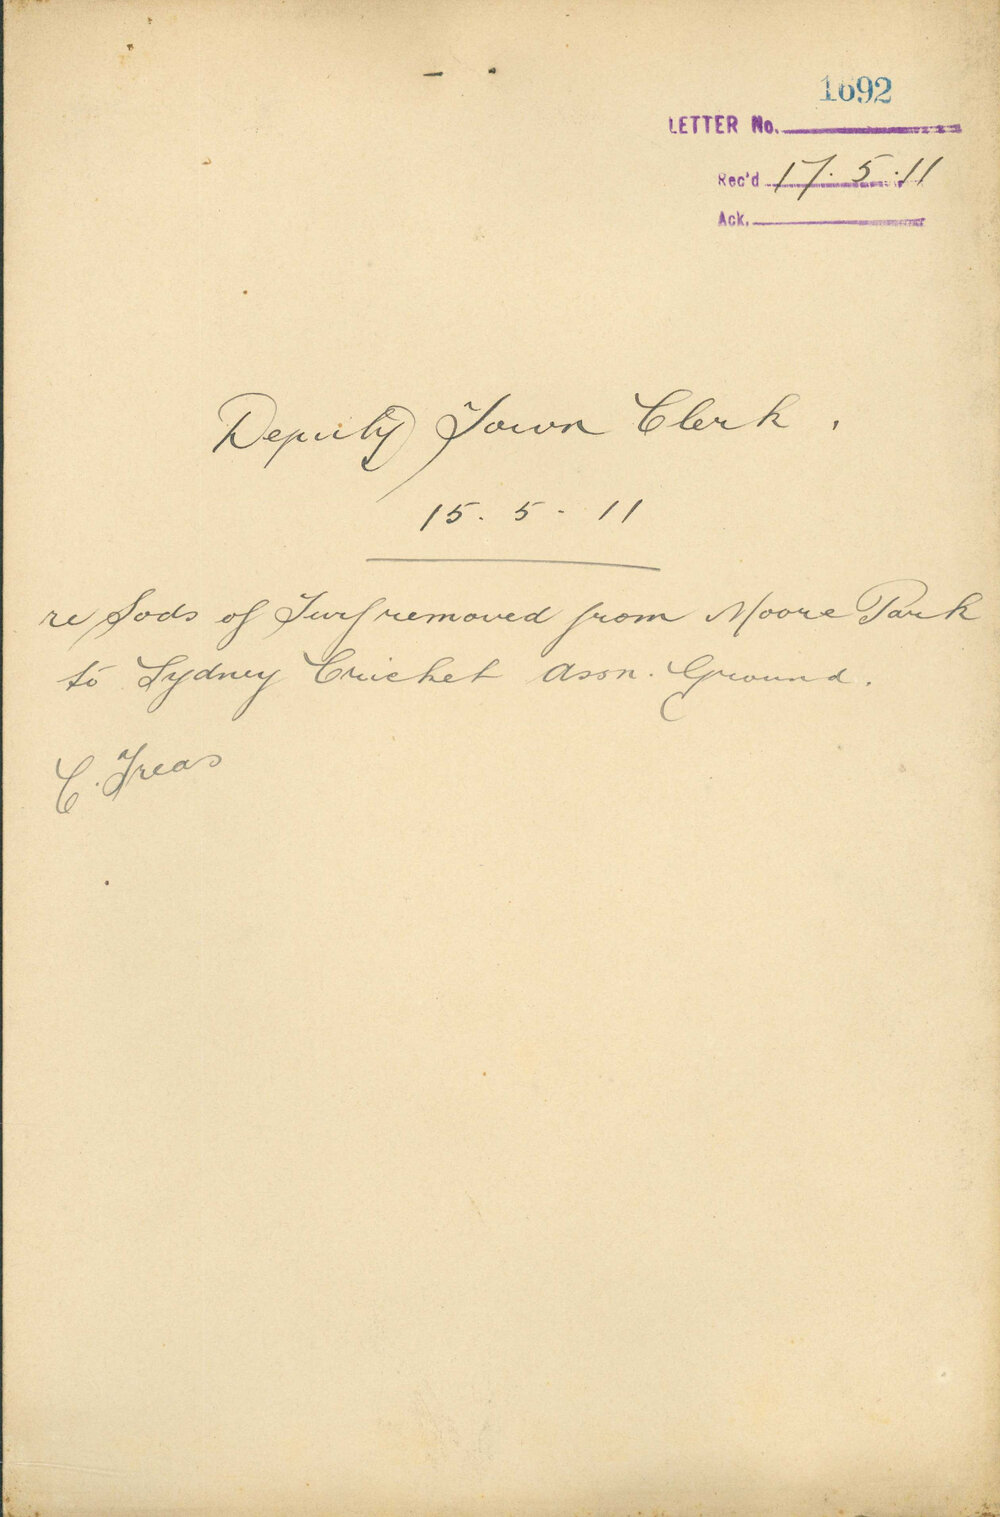 1692
LETTER No.
Rec'd 17.5.11
Ack.
Deputy Town Clerk.
15.5.11
re Sods of Turf removed from Moore Park
to Sydney Cricket Assn. Ground.
C. Treas